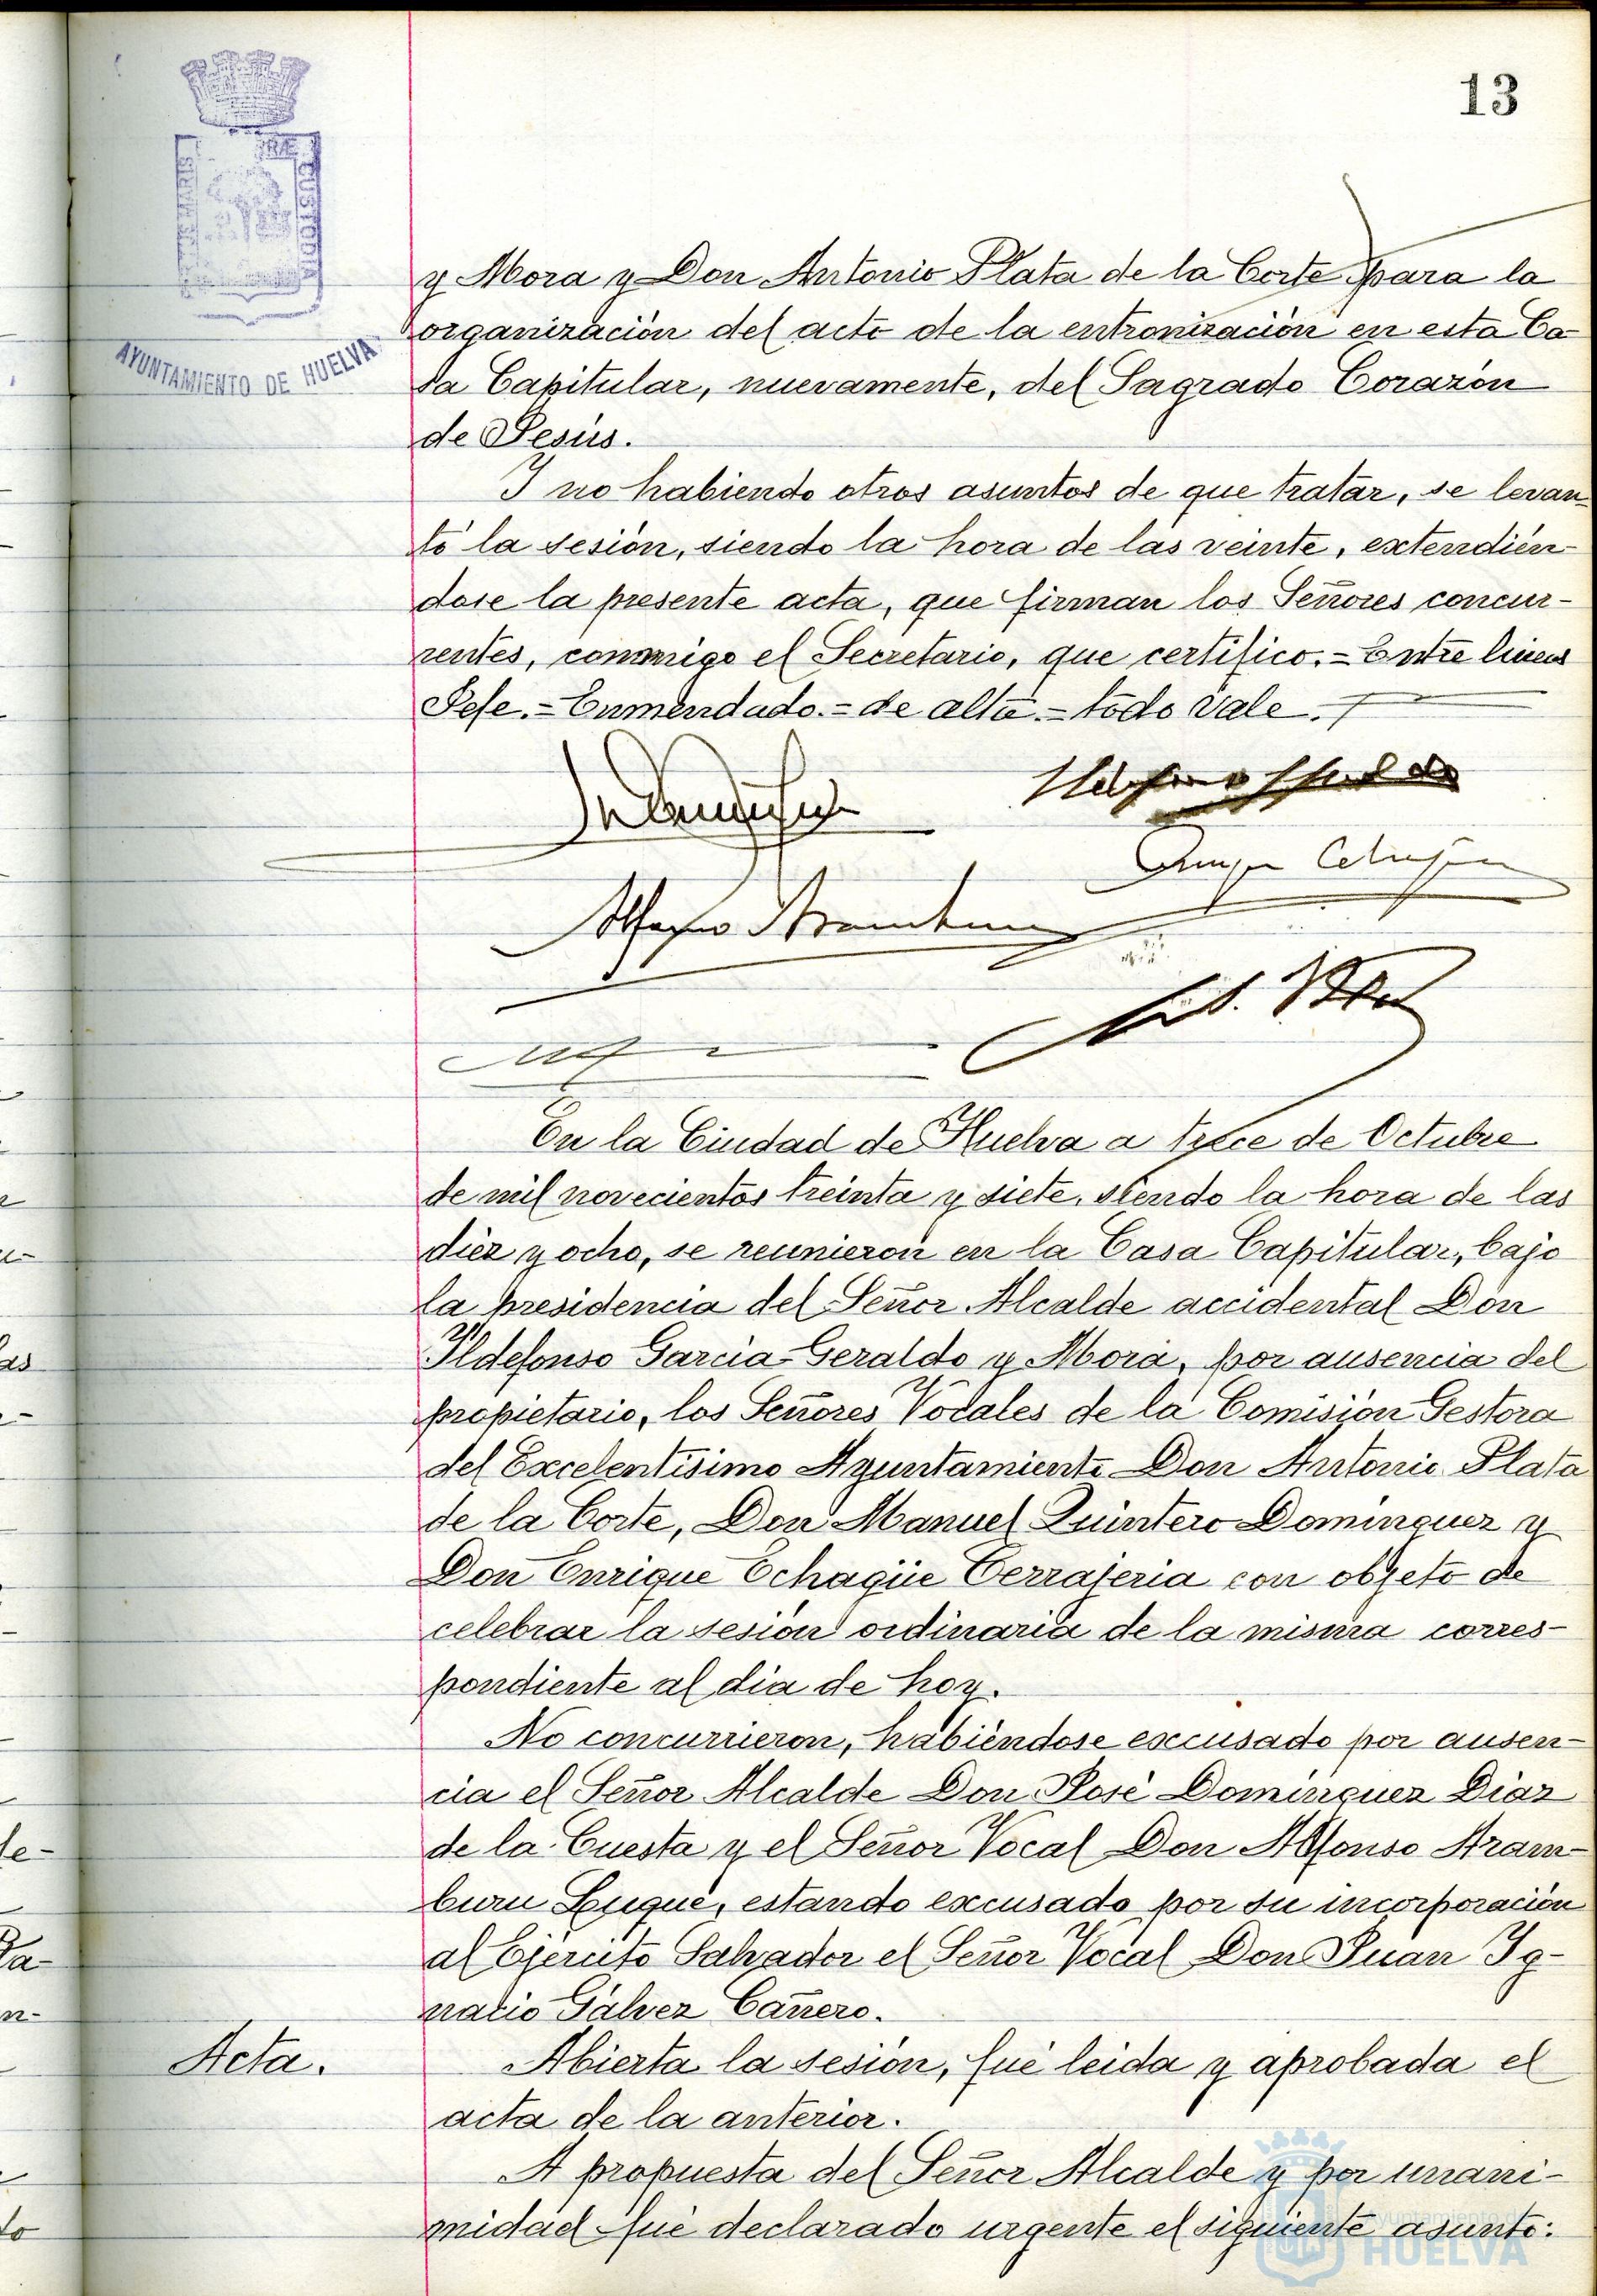 13
PORTUS MARIS
TERRAE
CUSTODIA
AYUNTAMIENTO DE HUELVA
y Mora y Don Antonio Plata de la Corte para la
organización del acto de la entronización en esta Ca-
sa Capitular, nuevamente, del Sagrado Corazón
de Jesús.
Y no habiendo otros asuntos de que tratar, se levan-
tó la sesión, siendo la hora de las veinte, extendién-
dose la presente acta, que firman los Señores concur-
rentes, conmigo el Secretario, que certifico.=Entre lineas
Jefe.=Enmendado.=de alta.=todo vale.
En la Ciudad de Huelva a trece de Octubre
de mil novecientos treinta y siete, siendo la hora de las
diez y ocho, se reunieron en la Casa Capitular, bajo
la presidencia del Señor Alcalde accidental Don
Ildefonso Garcia-Geraldo y Mora, por ausencia del
propietario, los Señores Vocales de la Comisión Gestora
del Excelentísimo Ayuntamiento Don Antonio Plata
de la Corte, Don Manuel Quintero Dominguez y
Don Enrique Echagüe Cerrajeria con objeto de
celebrar la sesión ordinaria de la misma corres-
pondiente al dia de hoy.
No concurrieron, habiéndose excusado por ausen-
cia el Señor Alcalde Don José Dominguez Diaz
de la Cuesta y el Señor Vocal Don Alfonso Aram-
buru Luque, estando excusado por su incorporación
al Ejército Salvador el Señor Vocal Don Juan Ig-
nacio Gálvez Cañero.
Acta.
Abierta la sesión, fué leida y aprobada el
acta de la anterior.
A propuesta del Señor Alcalde y por unani-
midad fué declarado urgente el siguiente asunto:
Ayuntamiento de
HUELVA